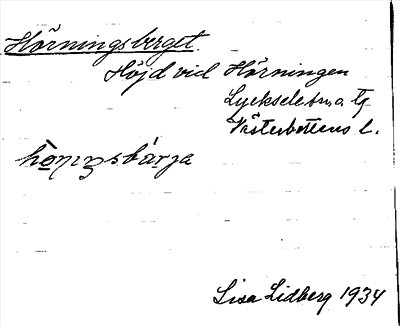 Hörningsberget.
Höjd vid Hörningen
Lycksele
Västerbottens L.
Lisa Lidberg 1934